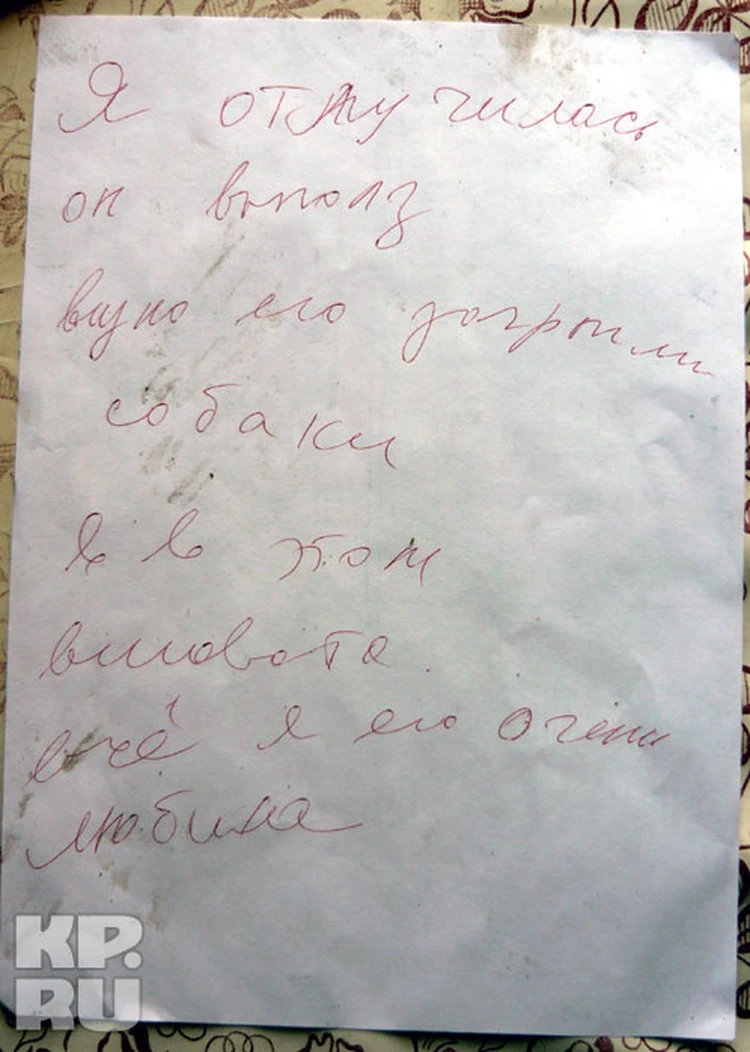 Я отлучилась
он выполз
видно его загрызли
собаки
Я в этом
виновата
ещё я его очень
любила
KP.
RU